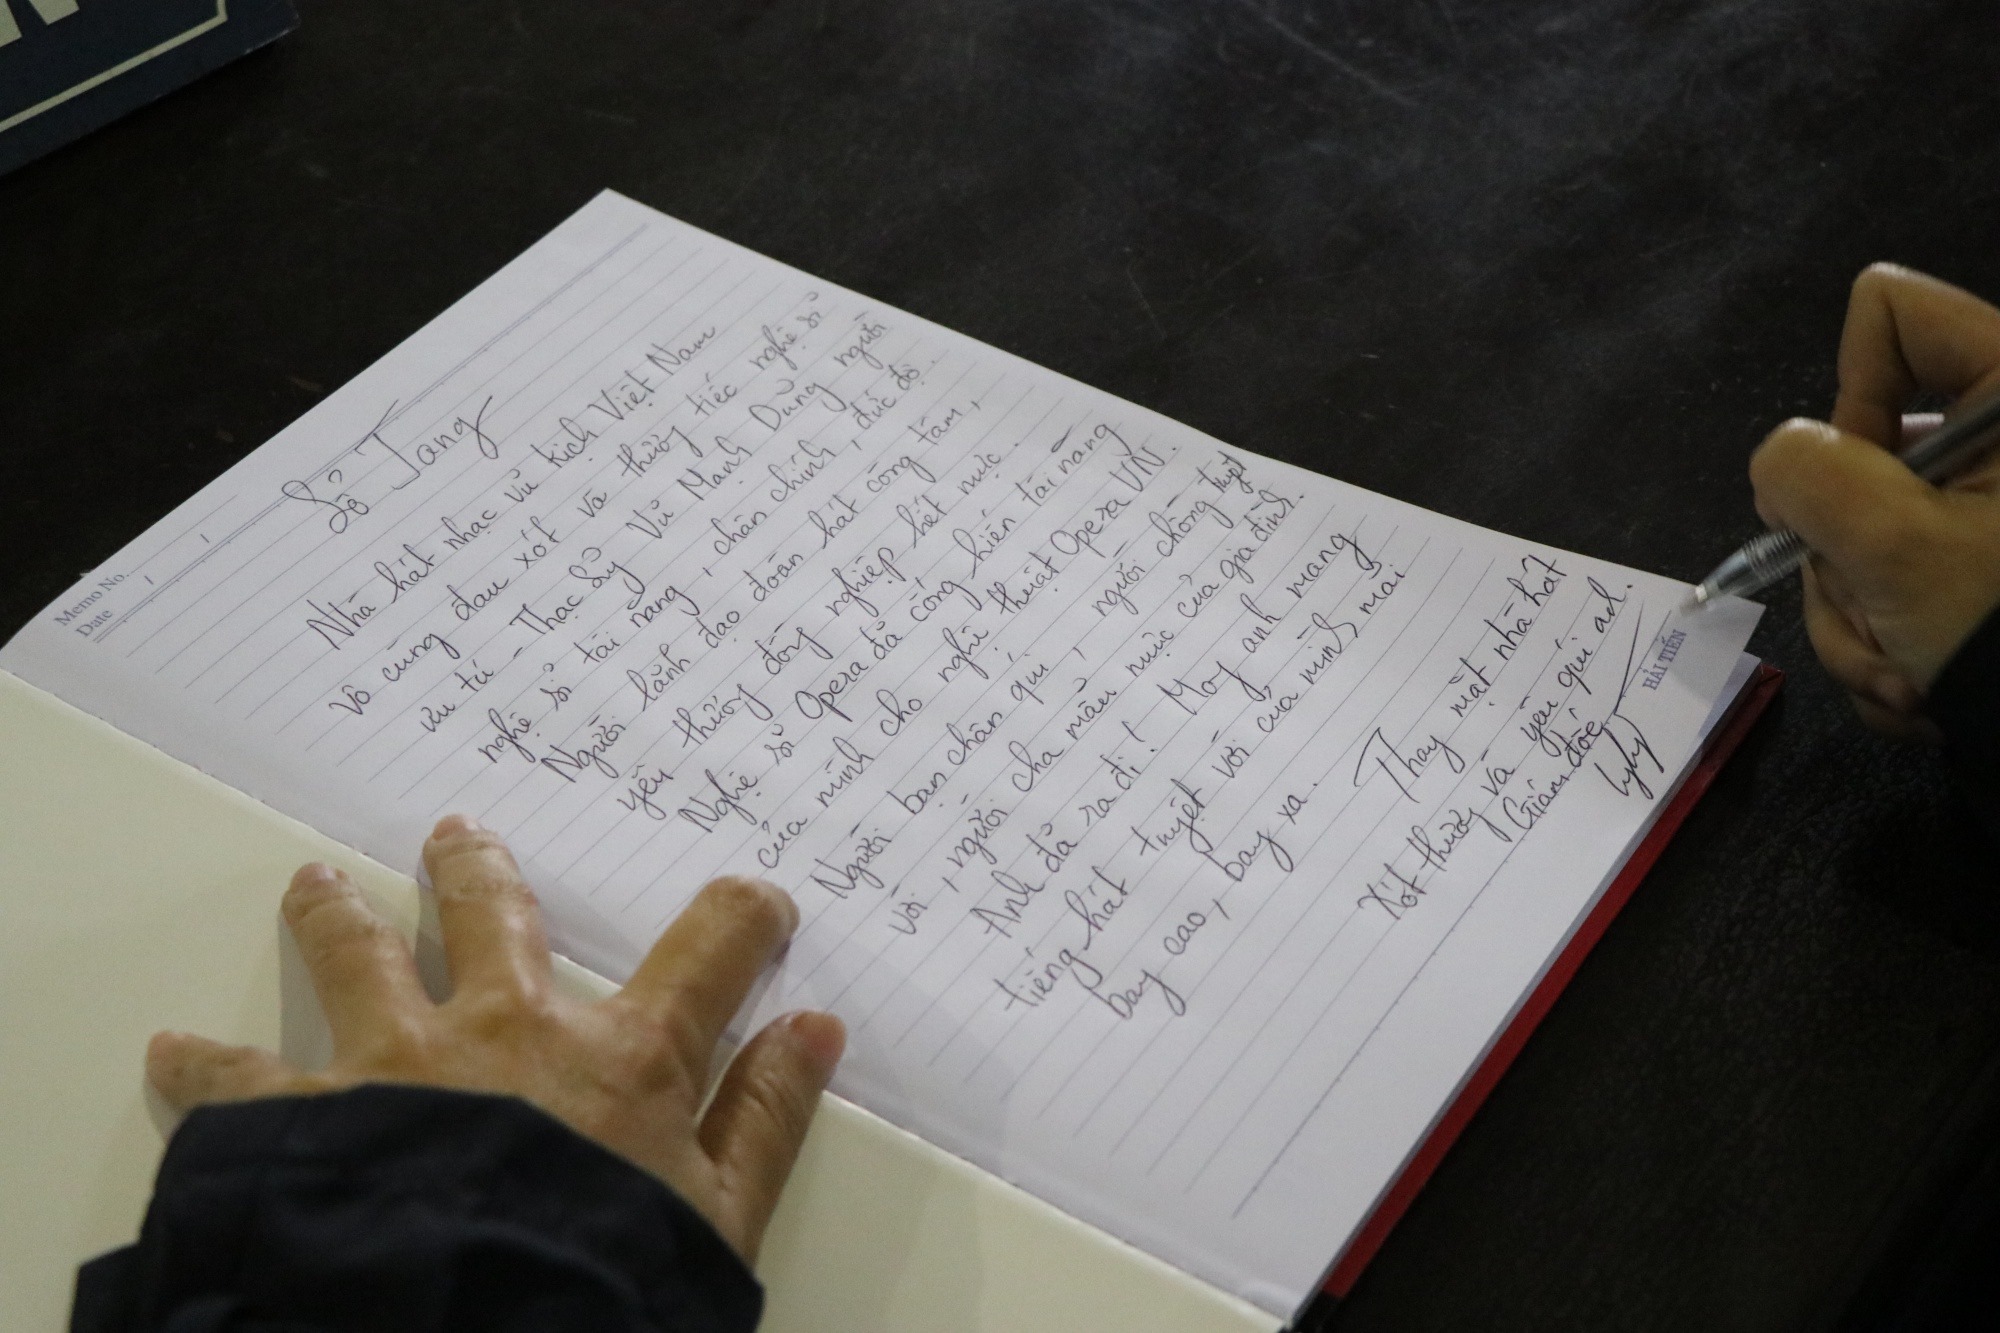 Memo No.
Date / /
Sổ Tang
Nhà hát nhạc vũ kịch Việt Nam
vô cùng đau xót và thương tiếc nghệ sĩ
ưu tú - Thạc sỹ Vũ Mạnh Dũng người
nghệ sĩ tài năng, chân chính, đức độ.
Người lãnh đạo đoàn hát công tâm,
yêu thương đồng nghiệp hết mực.
Nghệ sĩ Opera đã cống hiến tài năng
của mình cho nghệ thuật Opera VN.
Người bạn chân quí, người chồng tuyệt
vời, người cha mẫu mực của gia đình.
Anh đã ra đi! Mong anh mang
tiếng hát tuyệt vời của mình mãi
bay cao, bay xa.
Thay mặt nhà hát
Xót thương và yêu quí anh.
Giám đốc
HẢI TIẾN